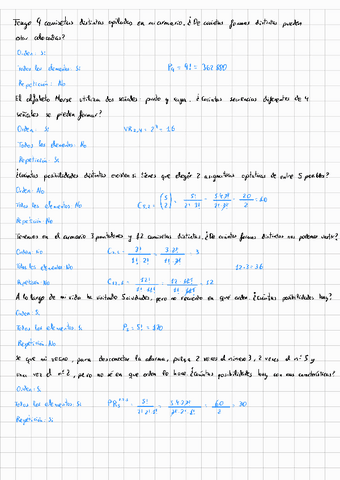 Tengo 9 camisetas distintas apiladas en mi armario, ¿De cuántas formas distintas pueden
estar colocadas?
Orden: Sí
Todos los elementos: Sí P₉ = 9! = 362 880
Repetición: No
El alfabeto Morse utiliza dos señales: punto y raya. ¿Cuántas secuencias diferentes de 4
señales se pueden formar?
Orden: Sí VR₂,₄ = 2⁴ = 16
Todos los elementos: No
Repetición: Sí
¿Cuántas posibilidades distintas existen si tienes que elegir 2 asignaturas optativas de entre 5 posibles?
Orden: No
Todos los elementos: No C₅,₂ = (5 2) = 5!/2!·3! = 5·4·3!/2!·3! = 20/2 = 10
Repetición: No
Tenemos en el armario 3 pantalones y 12 camisetas distintas, ¿De cuántas formas distintas nos podemos vestir?
Orden: No = 3
Todos los elementos: No 12·3=36
Repetición: No = 12
A lo largo de mi vida he visitado 5 ciudades, pero no recuerdo en qué orden. ¿Cuántas posibilidades hay?
Orden: Sí
Todos los elementos: Sí P₅ = 5! = 120
Repetición: No
Sé que mi vecino, para desconectar la alarma, pulsa 2 veces el número 3, 2 veces el nº 5 y
una vez el nº 2, pero no sé en qué orden lo hace. ¿Cuántas posibilidades hay con esas características?
Orden: Sí
Todos los elementos: Sí = 5!/2!·2!·1! = 5·4·3·2!/2!·2!·1! = 60/2 = 30
Repetición: Sí